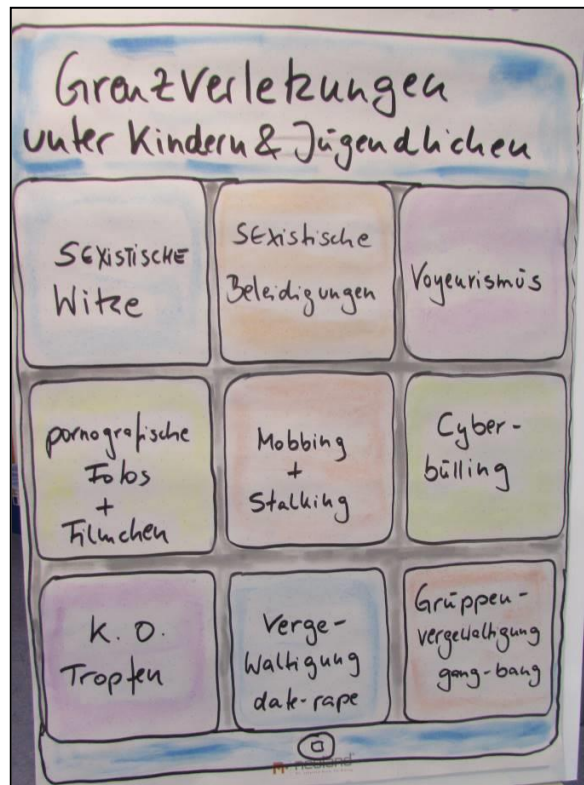 Grenzverletzungen
unter Kindern & Jugendlichen
SEXISTISCHE
Witze
SExistische
Beleidigungen
Voyeurismus
pornografische
Fotos
+
Filmchen
Mobbing
+
Stalking
Cyber-
bülling
K. O.
Tropfen
Verge-
waltigung
date-rape
Gruppen-
vergewaltigung
gang-bang
neuland